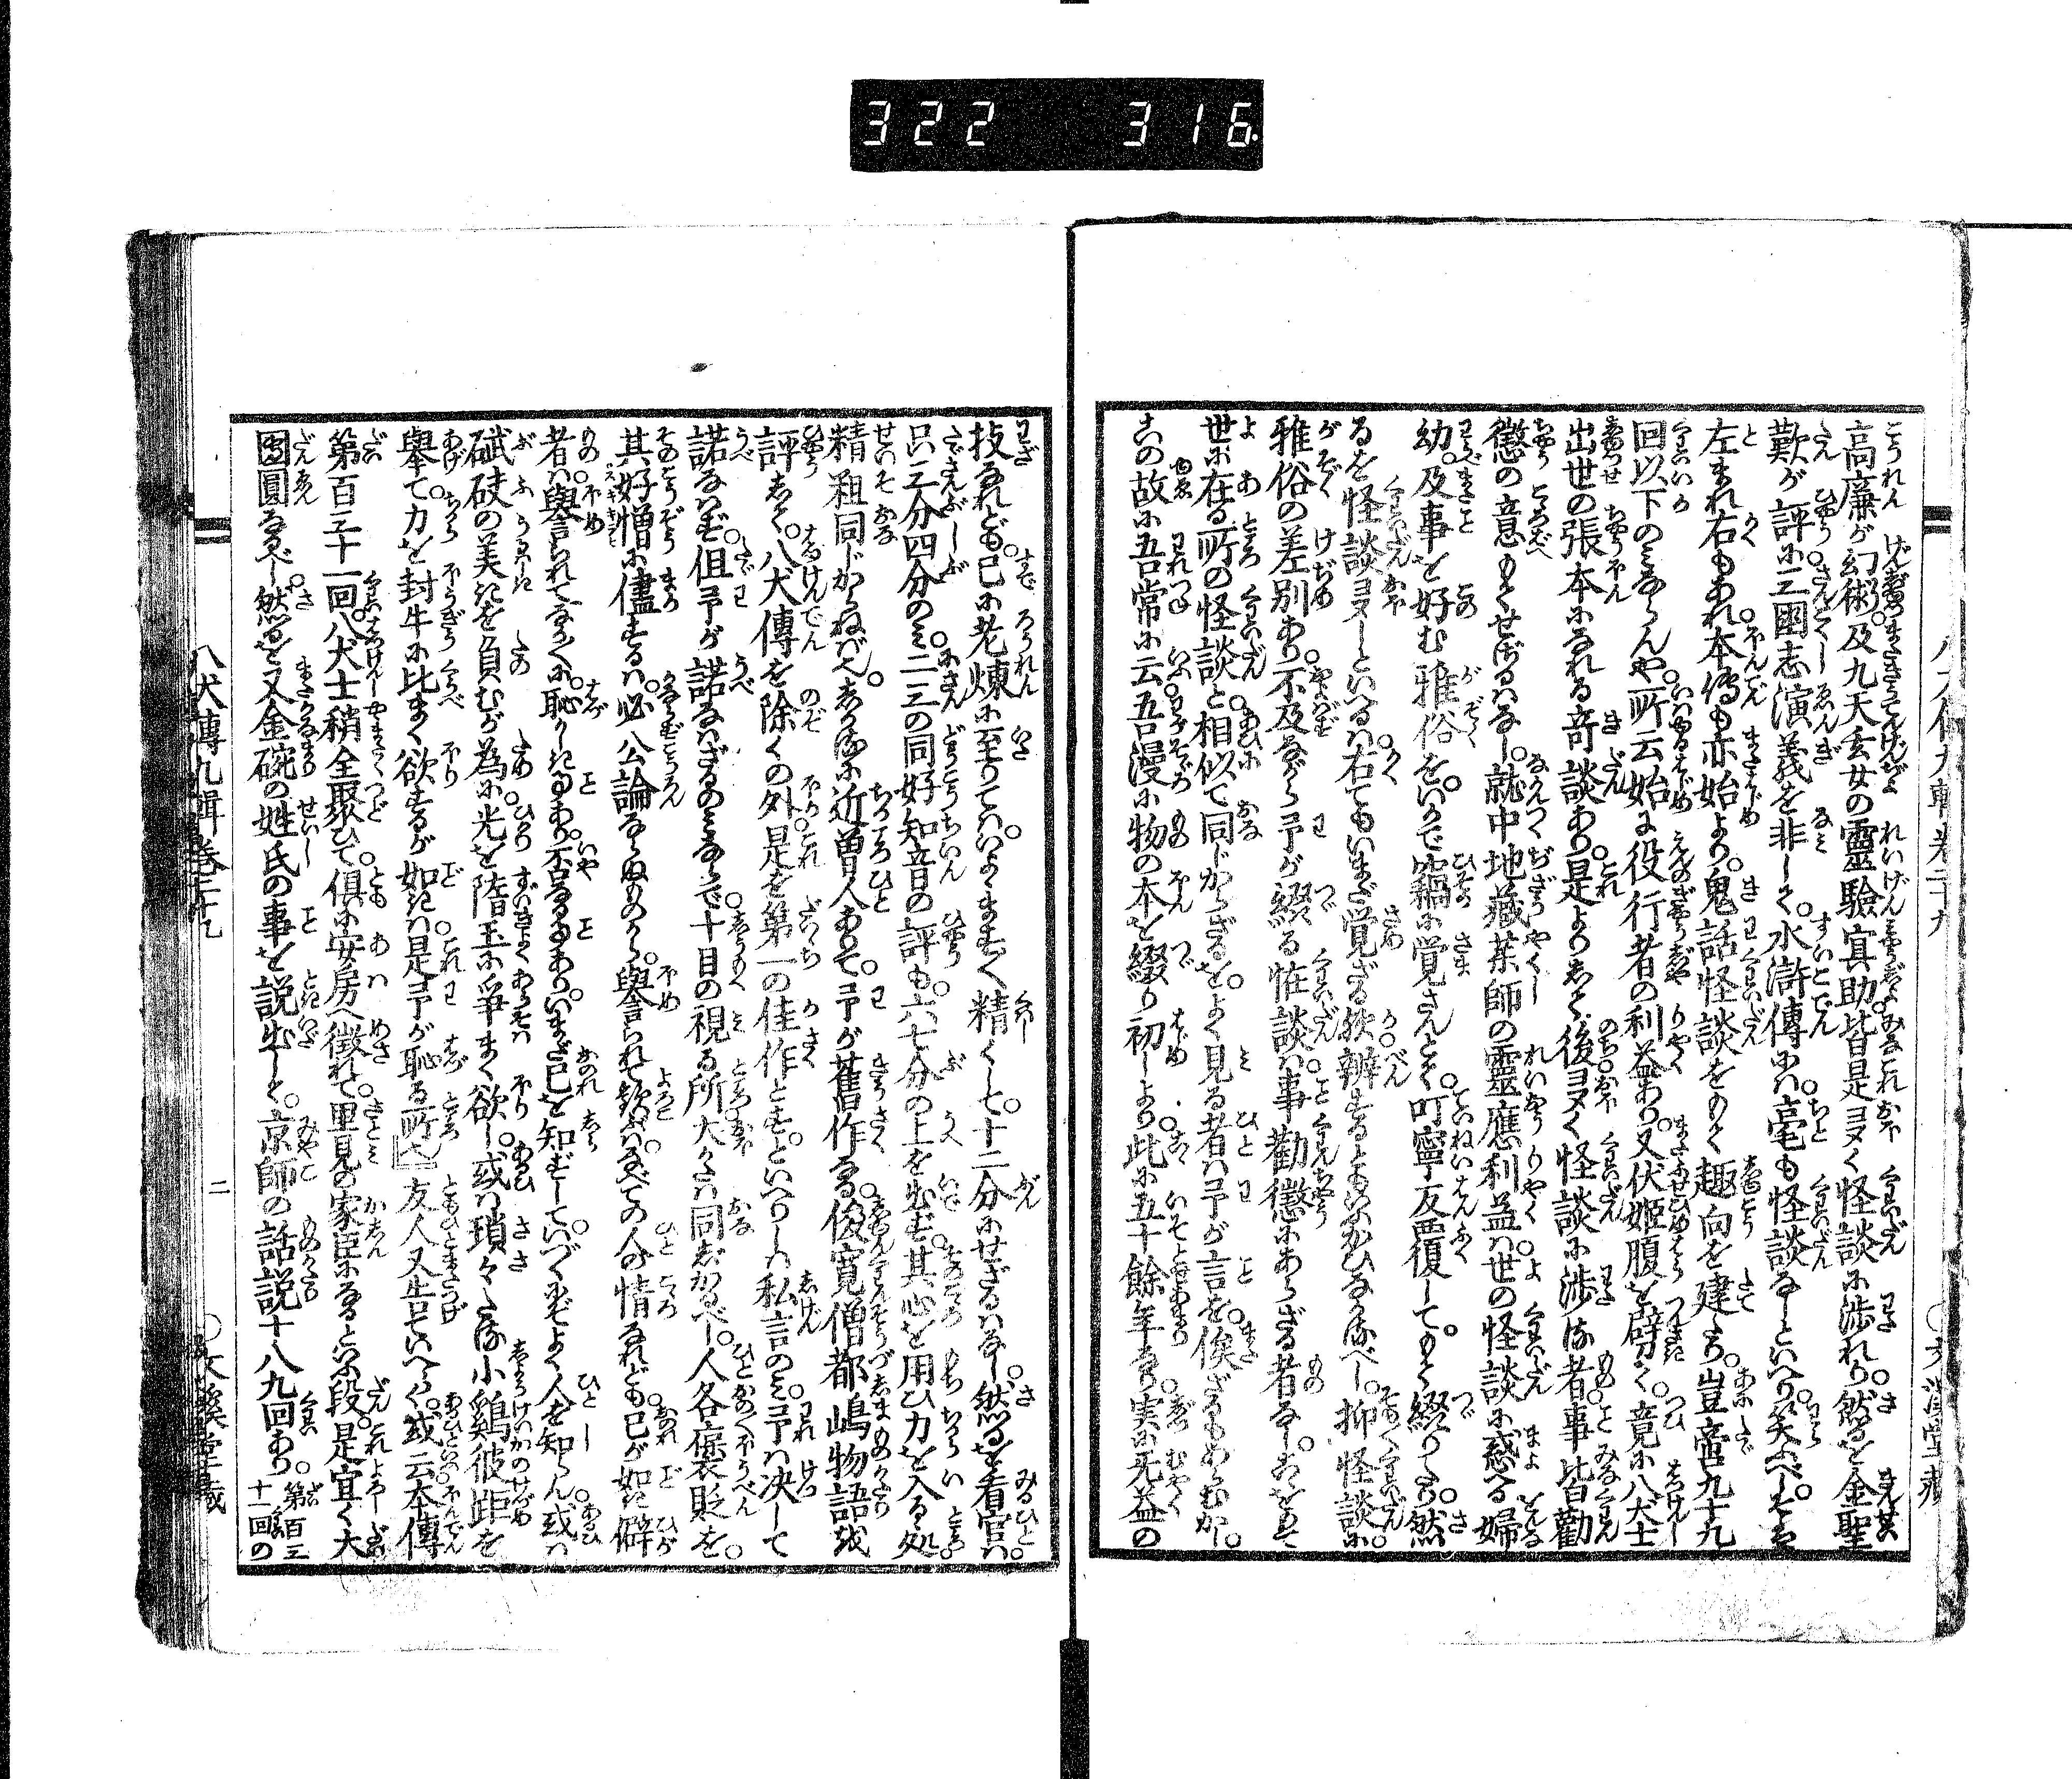 322 316
高廉が幻術。及九天玄女の靈驗冥助。皆是ヨヌく怪談に渉れり。然るを金聖
歎が評に三國志演義を非して。水滸傳には。毫も怪談なしといへり。笑ふべし。そを
左まれ右もあれ。本傳も亦始より。鬼話怪談をもて趣向を建たり。豈啻九十九
回以下のみならんや。所云始に役行者の利益あり。又伏姫腹を劈く。竟に八犬士
出世の張本になれる奇談あり。是よりして後ヨヌく怪談に渉る者。事皆勸
懲の意もてせざるはなし。就中地藏菜師の靈應利益は。世の怪談に惑へる婦
幼。及事を好む雅俗を。いかで竊に覚さんとて。叮寧反覆して。もて綴りたり。然
るを怪談ヨヌしといへるは。右てもいまだ覚ざる歟。辧するともいふかひなかるべし。抑怪談に。
雅俗の差別あり。不及ながら予が綴る恠談は。事勸懲にあらざる者なし。
世に在る所の怪談と。相似て同じからざるを。よく見る者は予が言を。俟ざるもあらむかし。
この故に吾常に云。吾漫に物の本を綴り初しより。此に五十餘年。実に无益の
技なれども。已に老煉に至りては。いよますく精くし。十二分にせざるはなし。然るを看官は。
只三分四分のみ。二三の同好知音の評も。六七分の上を出ず。其心を用ひ力を入る処。
精粗同じからねばへ。しかるに近曽人ありて。予が舊作なる。俊寛僧都嶋物語を
評して。八犬傳を除くの外。是を第一の佳作とすといへりしは。私言のみ。予は决して
諾なはず。但予が諾なはざるのみならで。十目の視る所。大かたは同じかるべし。人各褒貶を。
其好憎に儘するは。必公論ならぬものから。譽られて歓ぶは。なべての人の情なれども。己が如き僻
者は。譽られてなかくに。恥かしきあり。否なるあり。いまだ己を知ずして。いづくにぞよく人を知らん。或は
碔砆の美きを負むが為に。光を隋玉に爭まく欲し。或は瑣々たる小鷄彼距を
擧て。力を封牛に比まく欲するが如きは。是予が恥る所へ。友人又告ていへらく。或云。本傳
第百三十一回。八犬士稍全聚ひて。倶に安房へ徴れて。里見の家臣になるといふ段。是宜く大
團圓なるべし。然るを又金碗の姓氏の事を説出して。京師の話説十八九回あり。第百三
十一回の
八犬傳九輯卷二十九
二
文溪堂藏